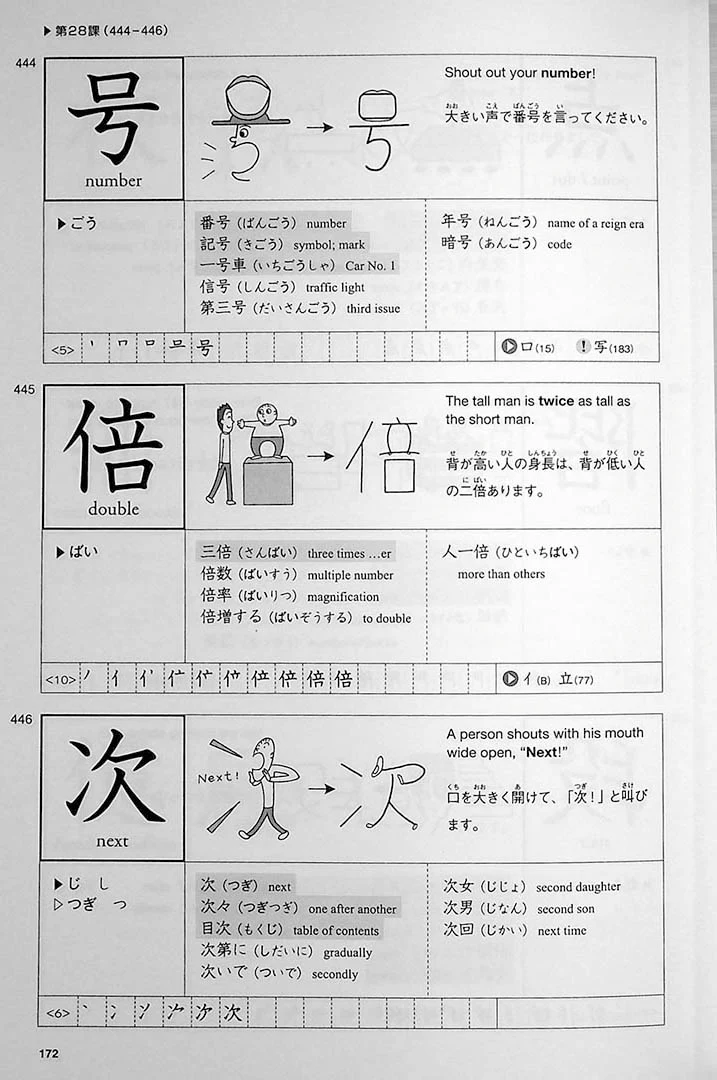 ▶第28課(444–446)
444
号
number
Shout out your number!
おお こえ ばんごう い
大きい声で番号を言ってください。
▶ごう
番号(ばんごう) number
記号(きごう) symbol; mark
一号車(いちごうしゃ) Car No. 1
信号(しんごう) traffic light
第三号(だいさんごう) third issue
年号(ねんごう) name of a reign era
暗号(あんごう) code
<5> 号
▶口(15) !写(183)
445
倍
double
The tall man is twice as tall as
the short man.
せ たか ひと しんちょう せ ひく ひと
背が高い人の身長は、背が低い人
に ばい
の二倍あります。
▶ばい
三倍(さんばい) three times …er
倍数(ばいすう) multiple number
倍率(ばいりつ) magnification
倍増する(ばいぞうする) to double
人一倍(ひといちばい)
more than others
<10> 倍
▶イ(B) 立(77)
446
次
next
Next!
A person shouts with his mouth
wide open, “Next!”
くち おお あ つぎ さけ
口を大きく開けて、「次！」と叫び
ます。
▶じ し
▷つぎ つ
次(つぎ) next
次々(つぎつぎ) one after another
目次(もくじ) table of contents
次第に(しだいに) gradually
次いで(ついで) secondly
次女(じじょ) second daughter
次男(じなん) second son
次回(じかい) next time
<6> 次
172